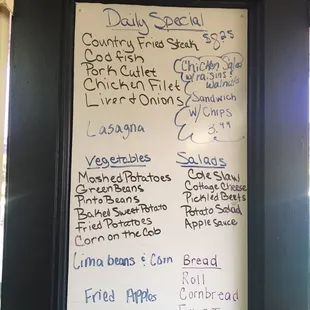 Daily Special
Country Fried Steak $8.25
Cod fish
Pork Cutlet
Chicken Filet
Liver & Onions
Lasagna
Chicken Salad
w/raisins &
walnuts
Sandwich
w/ Chips
3.99
Vegetables
Mashed Potatoes
Green Beans
Pinto Beans
Baked Sweet Potato
Fried Potatoes
Corn on the Cob
Lima beans & Corn
Fried Apples
Salads
Cole Slaw
Cottage Cheese
Pickled Beets
Potato Salad
Apple Sauce
Bread
Roll
Cornbread